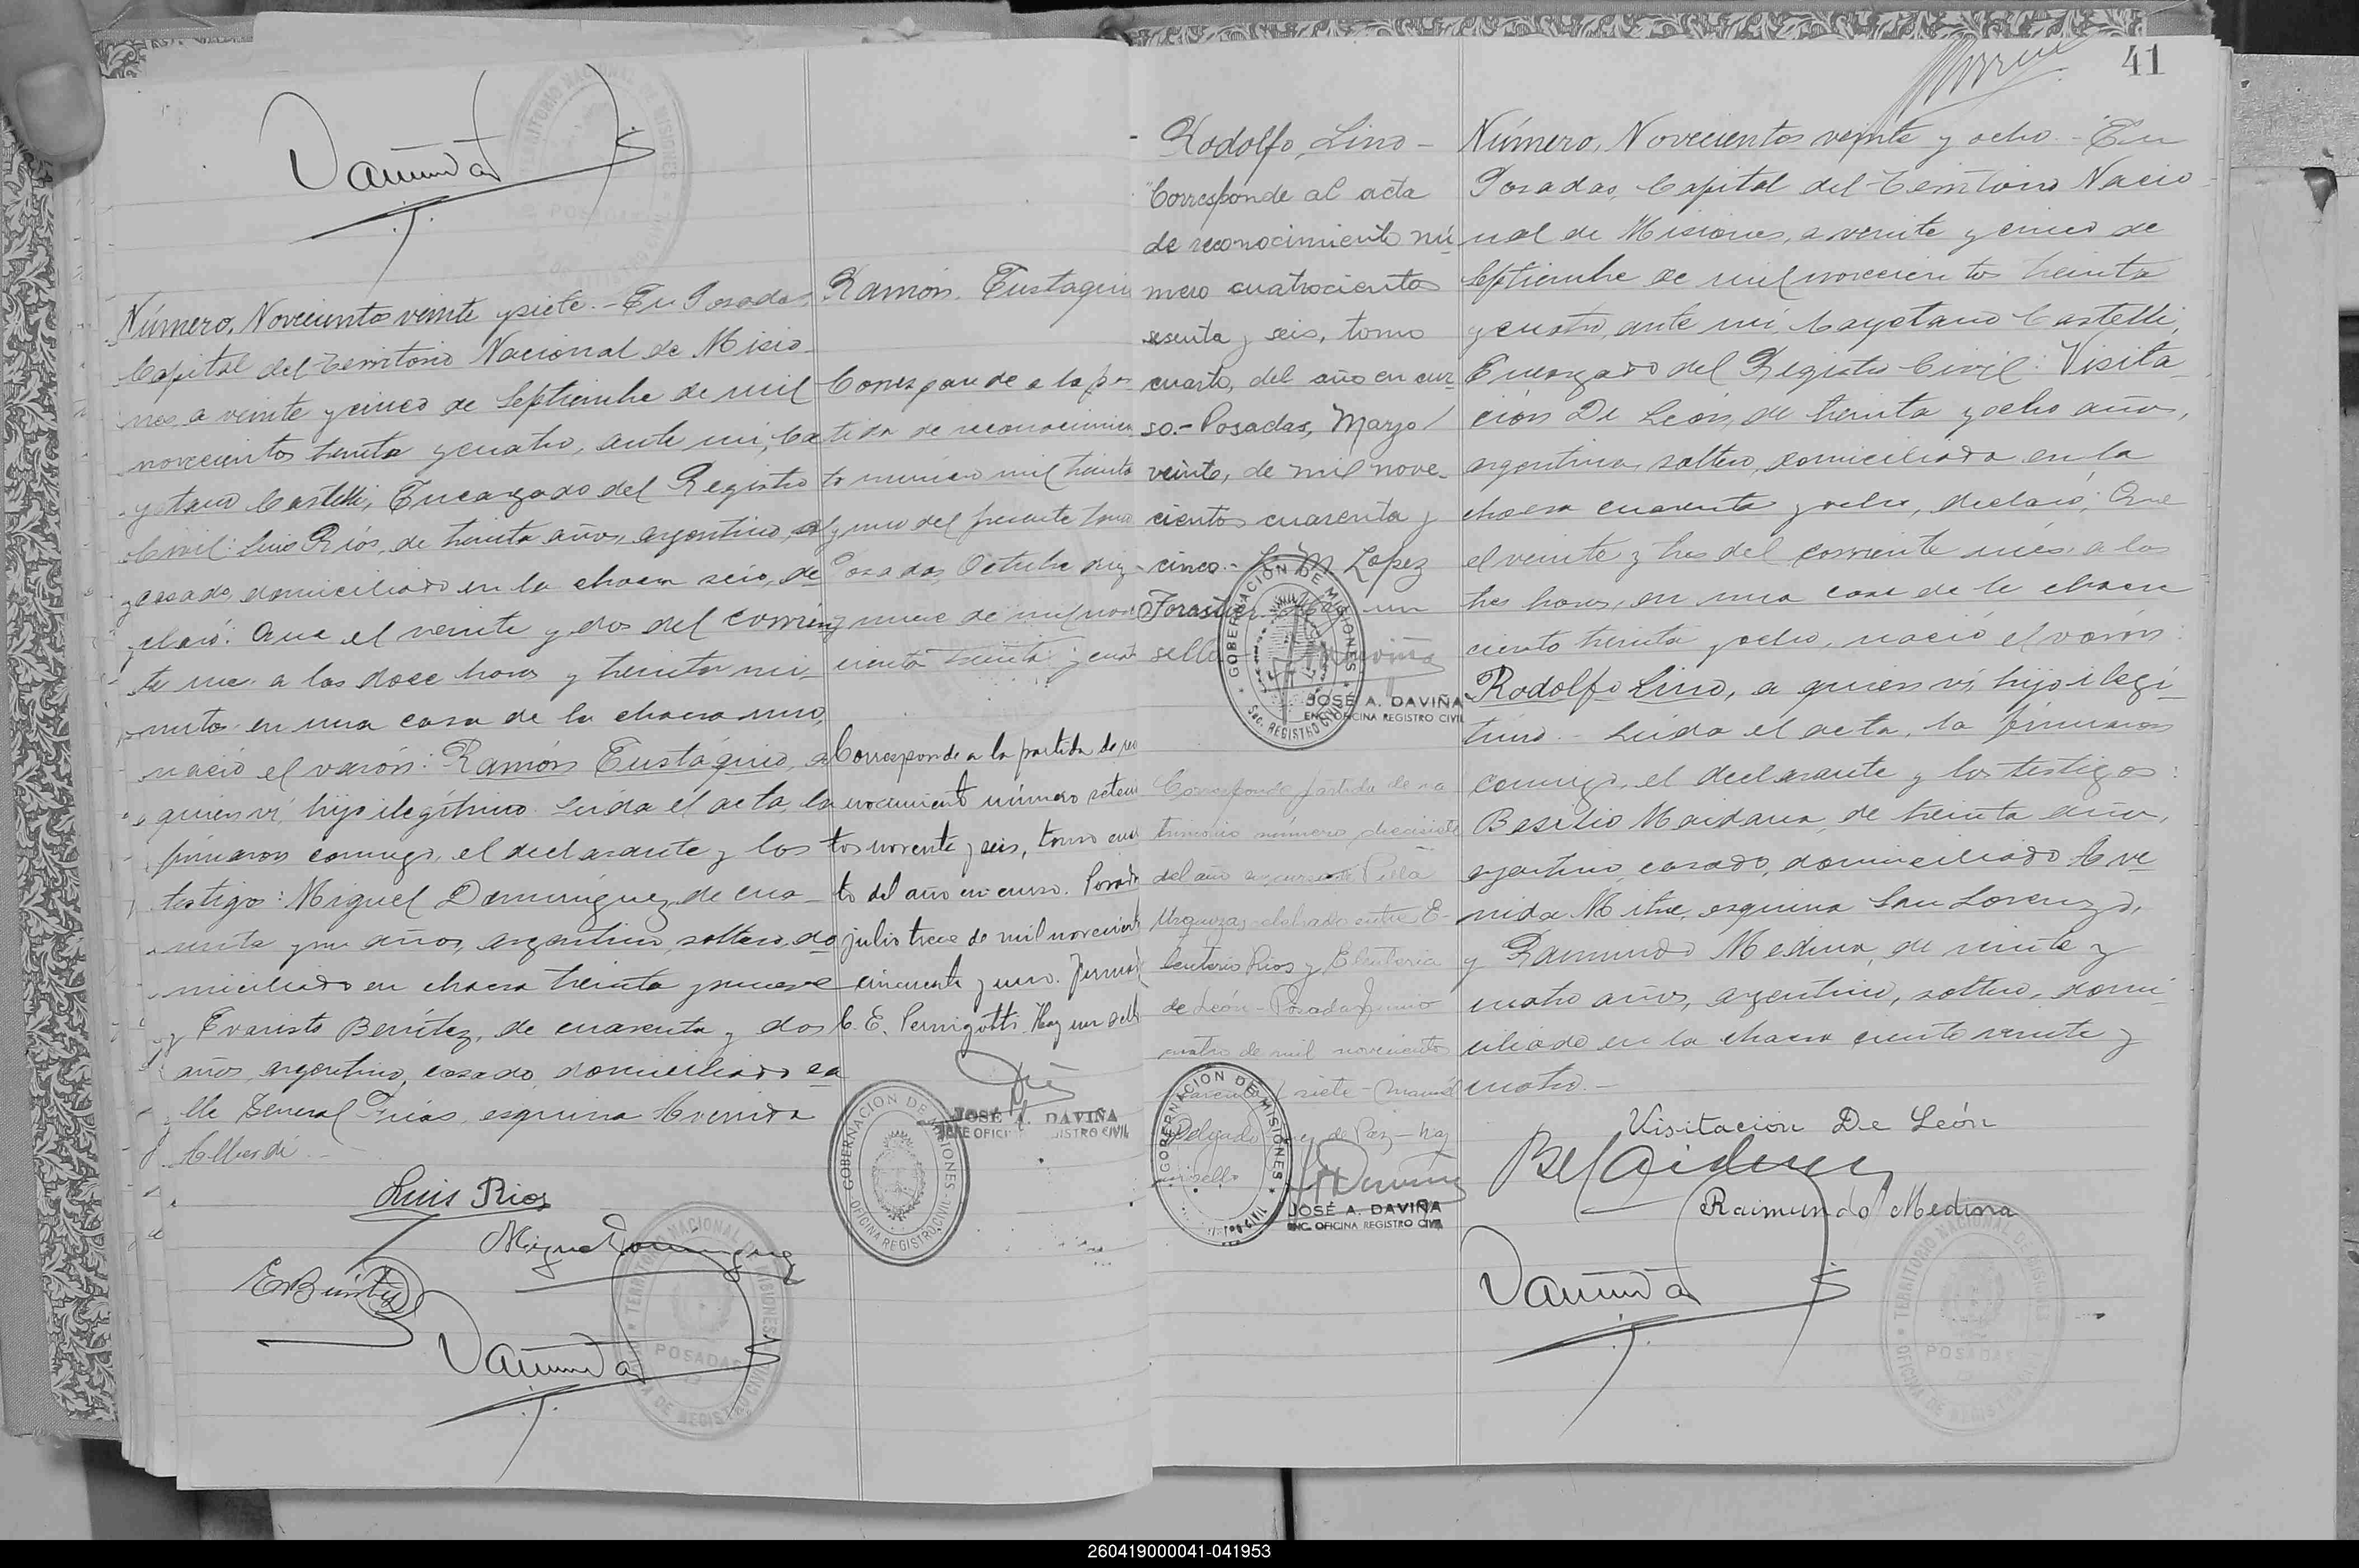 Número, Novecientos veinte y siete.- En Posadas
Capital del Territorio Nacional de Misio-
nes, a veinte y cinco de Septiembre de mil
novecientos treinta y cuatro, ante mi, Ca
yetano Castelli, Encargado del Registro
Civil: Luis Ríos, de treinta años, argentino,
casado, domiciliado en la chacra seis, de
claró: Que el veinte y dos del corrien
te mes a las doce horas y treinta mi-
nutos en una casa de la chacra uno,
nació el varón: Ramón Eustáquio, a
quien vi, hijo ilegítimo. Leida el acta, la
firmaron conmigo, el declarante y los
testigos: Miguel Dominguez, de cua-
renta y un años, argentino, soltero, do
miciliado en chacra treinta y nueve
y Evaristo Benítez, de cuarenta y dos
años, argentino, casado, domiciliado ca
lle General Frias, esquina Avenida
Alberdi.-
Luis Rios
Miguel Dominguez
EBenitez
Ramón, Eustaquio
Corresponde a la par
tida de reconocimien
to número mil treinta
y uno del presente tomo
Posadas, Octubre diez
y nueve de mil nove
cientos treinta y cuatro
Corresponde a la partida de reco
nocimiento número setecien
tos noventa y seis, tomo cuar
to del año en curso. Posadas
julio trece de mil novecientos
cincuenta y uno. Firmado
C. E. Pernigotti. Hay un sello
GOBERNACION DE MISIONES
OFICINA REGISTRO CIVIL
JOSÉ A. DAVIÑA
JEFE OFICINA REGISTRO CIVIL
TERRITORIO NACIONAL DE MISIONES
POSADAS
OFICINA DE REGISTRO CIVIL
41
Rodolfo, Lino-
Corresponde al acta
de reconocimiento nú
mero cuatrocientos
sesenta y seis, tomo
cuarto, del año en cur
so.- Posadas, Marzo
veinte, de mil nove-
cientos cuarenta y
cinco.- L. M. Lopez
Forastier. Hay un
sello
GOBERNACION DE MISIONES
JOSÉ A. DAVIÑA
ENC. OFICINA REGISTRO CIVIL
Corresponde partida de ma
trimonio número diecisiete
del año en curso Villa
Urquiza, celebrado entre E-
leuterio Rios y Eleuteria
de León - Posadas Junio
cuatro de mil novecientos
cuarenta y siete - Manuel
Delgado Juez de Paz - hay
un sello
GOBERNACION DE MISIONES
JOSÉ A. DAVIÑA
ENC. OFICINA REGISTRO CIVIL
Número, Novecientos veinte y ocho.- En
Posadas, Capital del Territorio Nacio
nal de Misiones, a veinte y cinco de
Septiembre de mil novecientos treinta
y cuatro, ante mi, Cayetano Castelli,
Encargado del Registro Civil: Visita-
ción De León, de treinta y ocho años,
argentina, soltera, domiciliada en la
chacra cuarenta y ocho, declaró: Que
el veinte y tres del corriente mes a las
tres horas, en una casa de la chacra
ciento treinta y ocho, nació el varón:
Rodolfo Lino, a quien vi, hijo ilegí
timo.- Leida el acta, la firmaron
conmigo, el declarante y los testigos:
Basilio Maidana, de treinta años,
argentino, casado, domiciliado Ave
nida Mitre, esquina San Lorenzo,
y Raimundo Medina, de veinte y
cuatro años, argentino, soltero, domi
ciliado en la chacra ciento veinte y
cuatro.-
Visitacion De León
Raimundo Medina
TERRITORIO NACIONAL DE MISIONES
POSADAS
OFICINA DE REGISTRO CIVIL
260419000041-041953